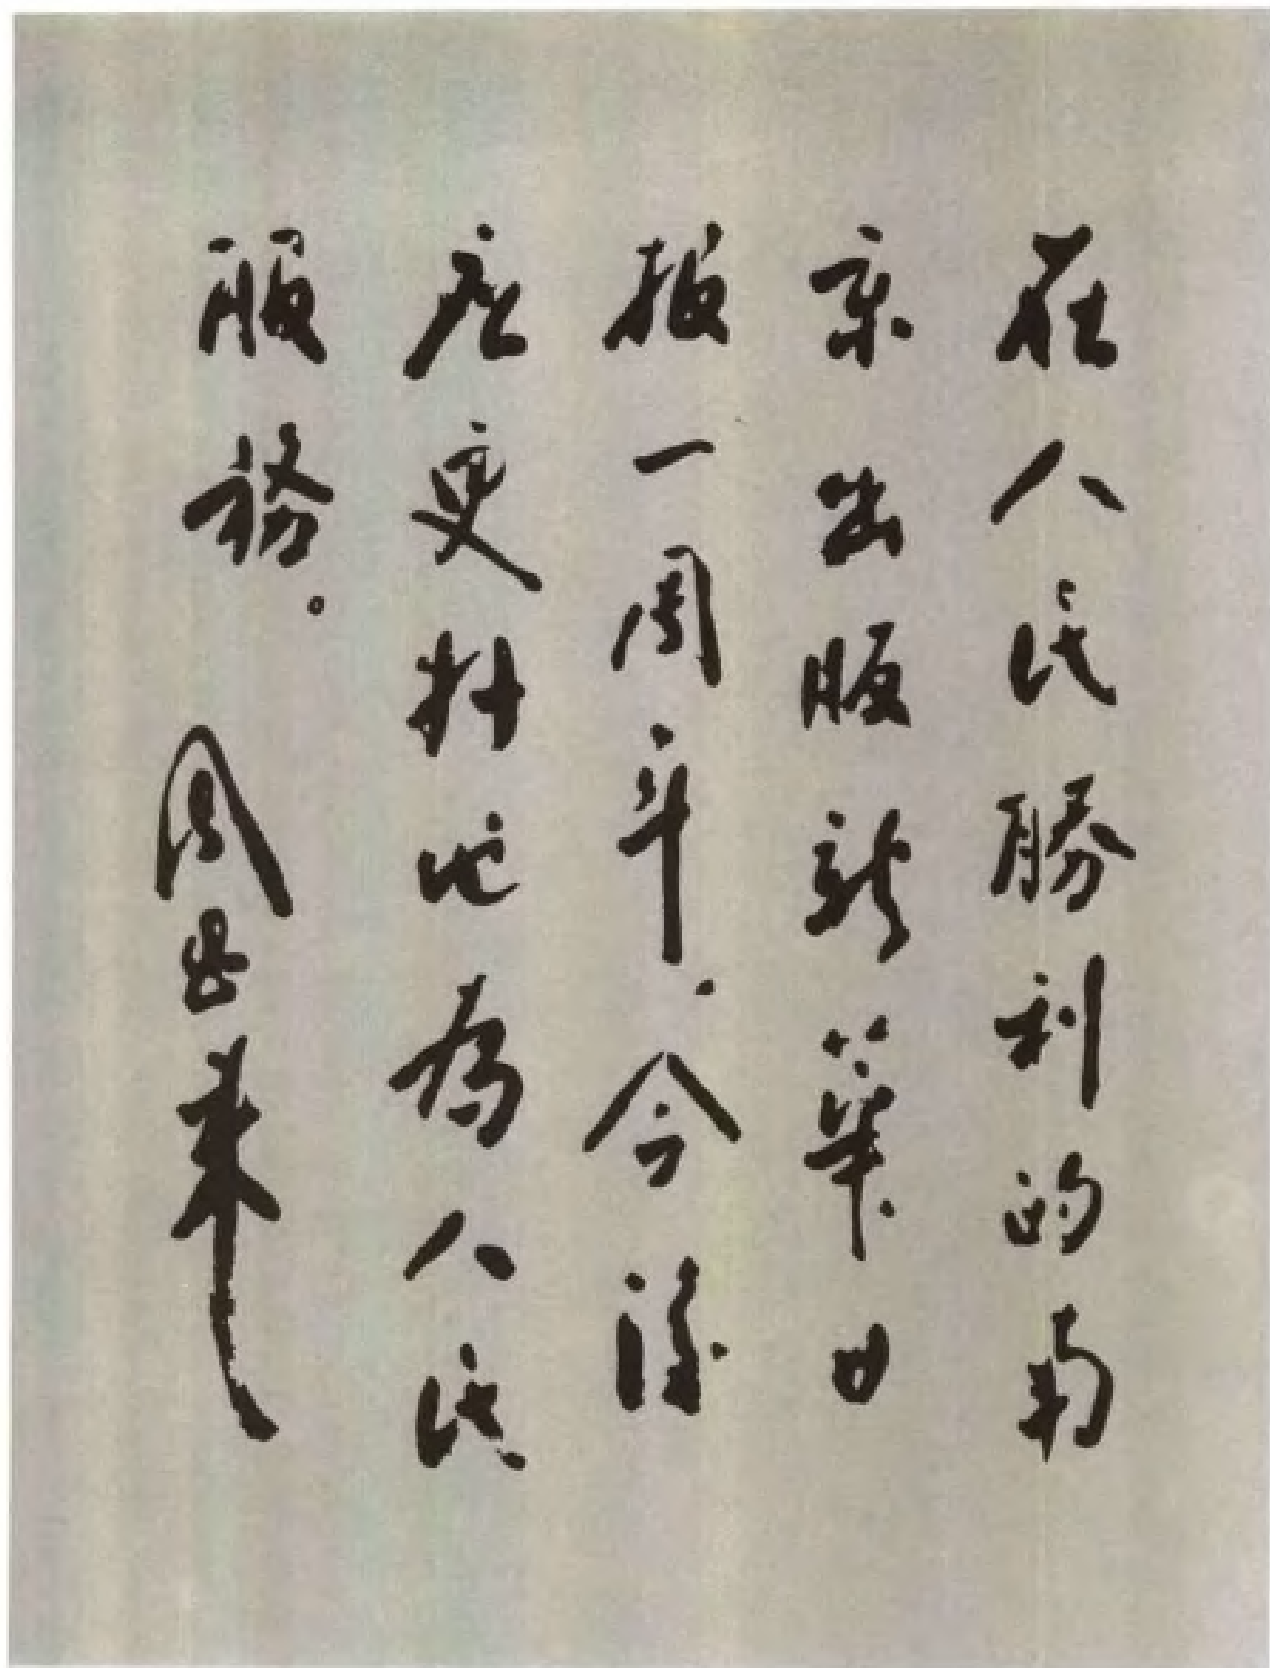 在人民勝利的南
京出版新華日
报一周年，今後
应更好地为人民
服務。 周恩来